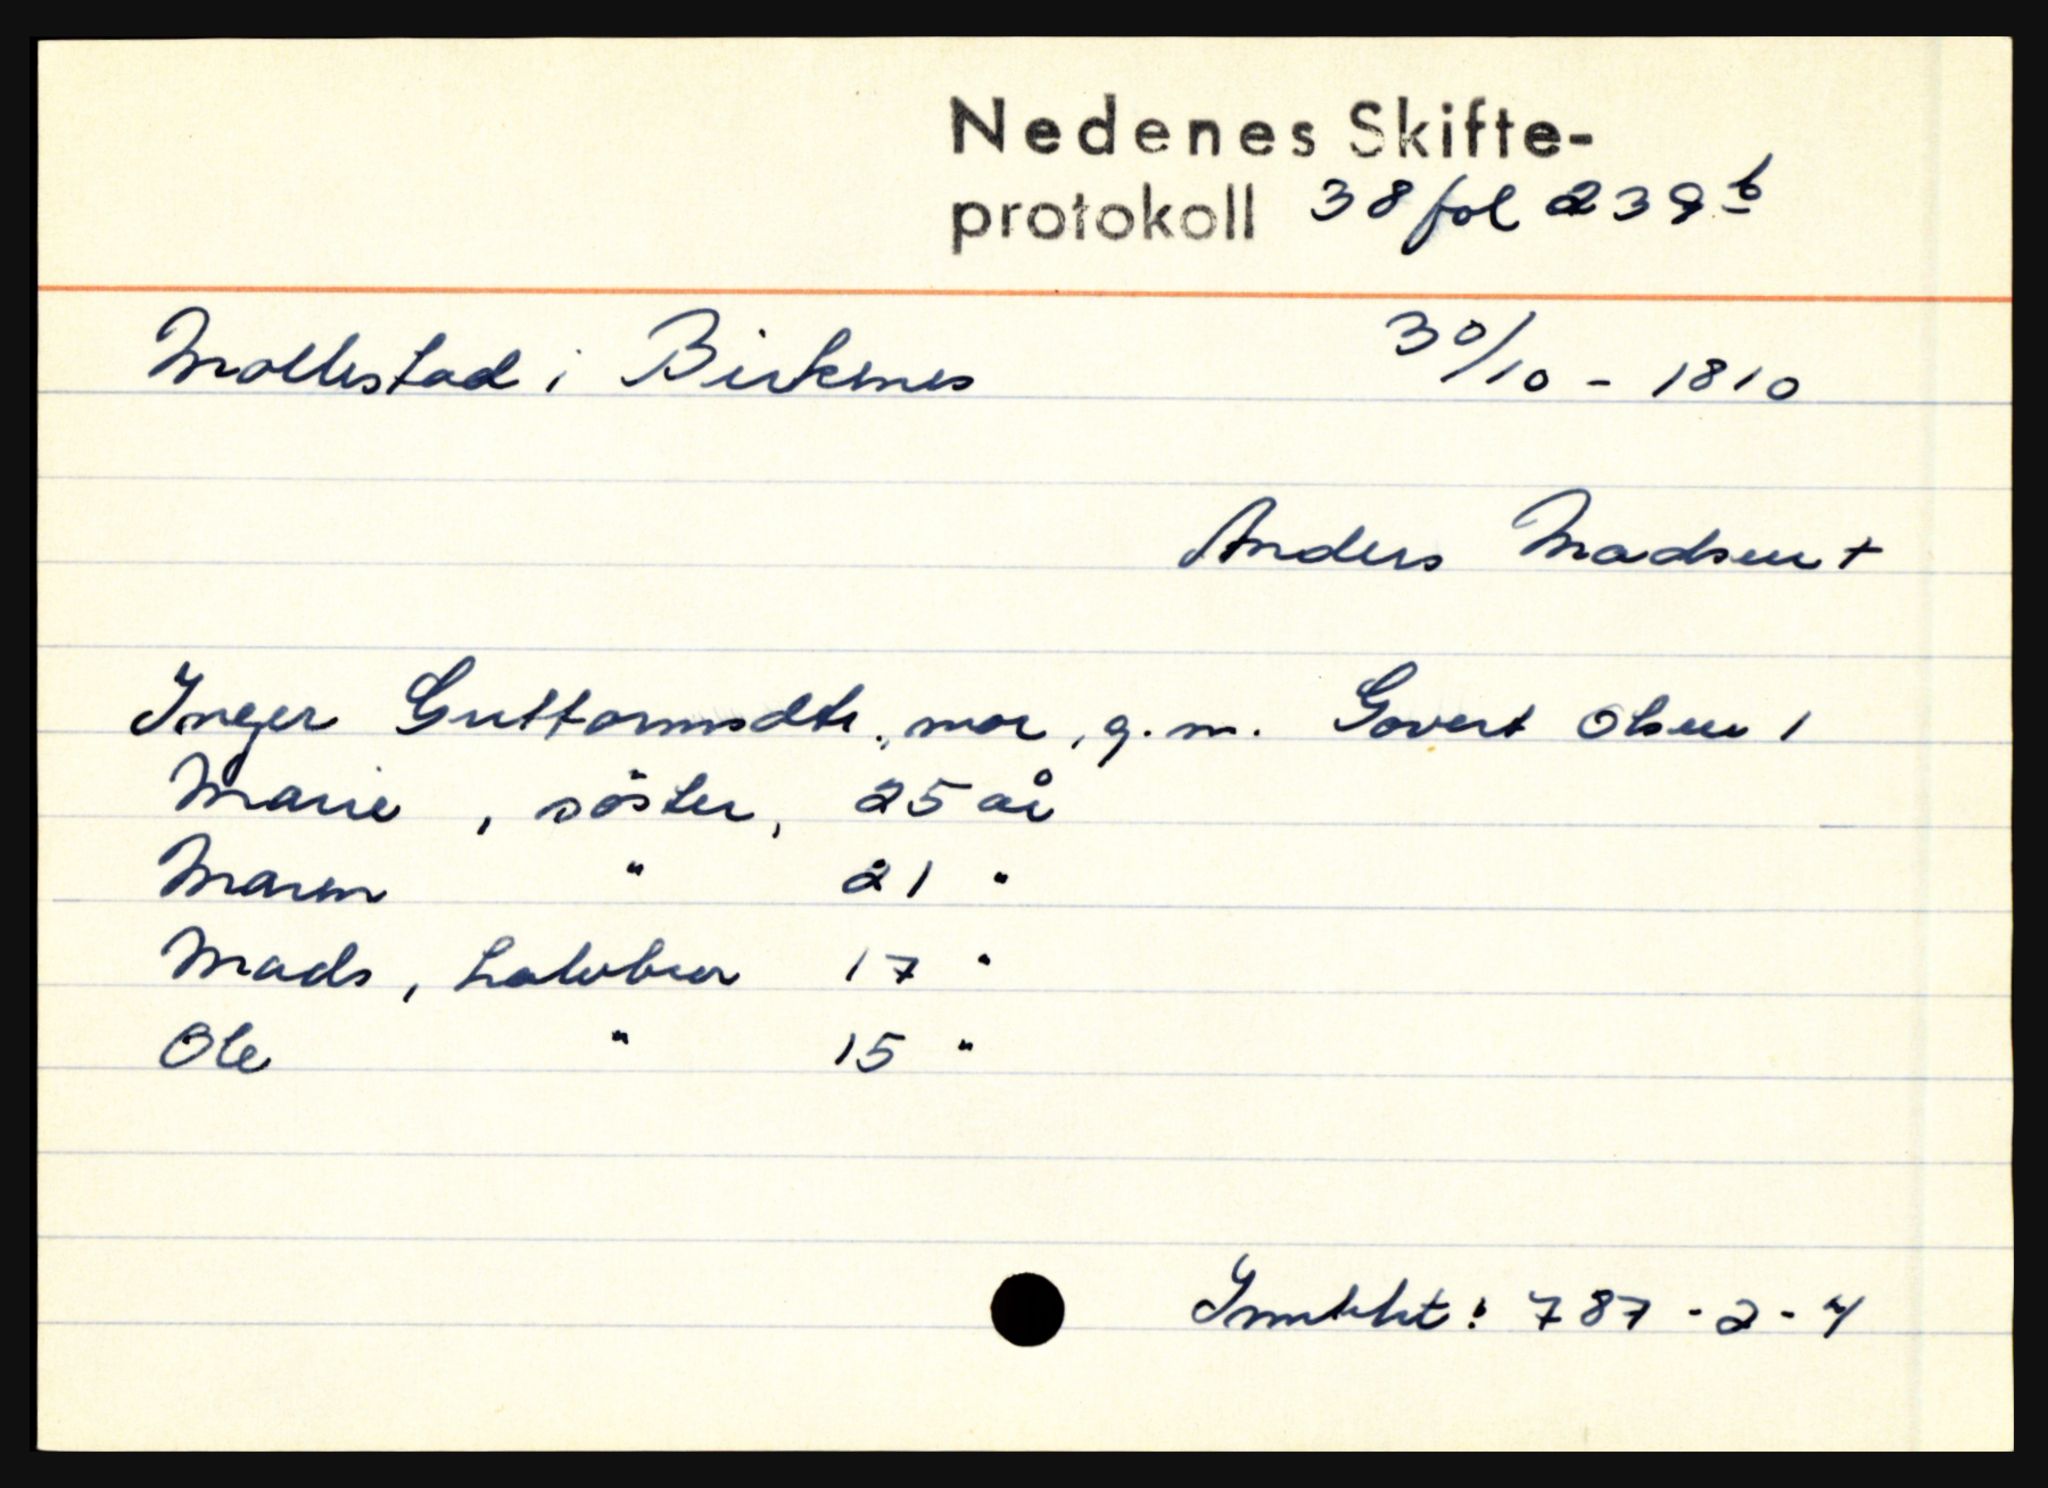 Nedenes Skifte-
protokoll 38 fol 239 b
Mollestad i Birkenes 30/10 - 1810
Anders Madsen +
Inger Guttormsdtr., mor, g.m. Govert Olsen /
Marie, söster, 25 år
Maren " 21 "
Mads, halvbror 17 "
Ole " 15 "
: 787 - 2 - 4